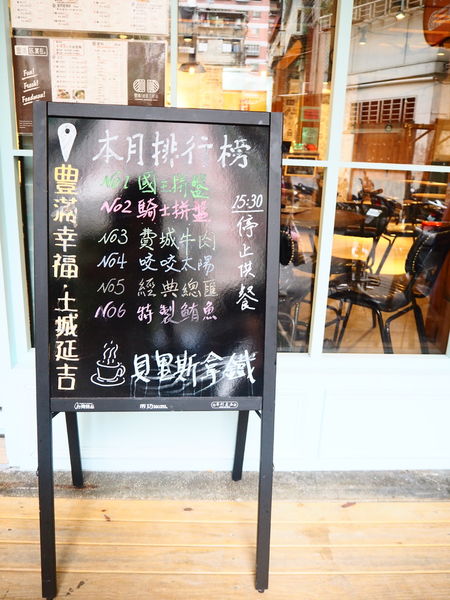 本月排行榜
No1 國王拼盤
No2 騎士拼盤
No3 費城牛肉
No4 咬咬太陽
No5 經典總匯
No6 特製鮪魚
15:30
停止供餐
豊滿幸福・土城延吉
貝里斯拿鐵
Fun!
Fresh!
Freedom!